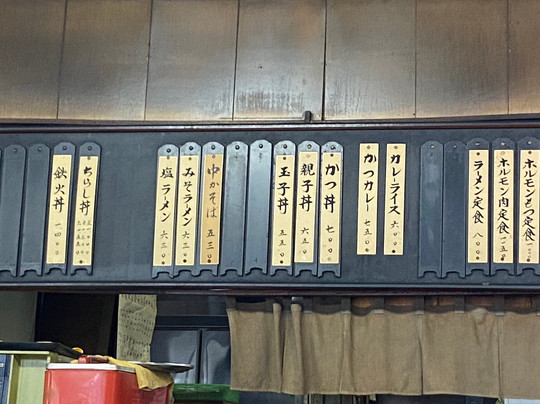 ホルモンもつ定食
ホルモン肉定食
ラーメン定食 八〇〇
カレーライス 六〇〇
かつカレー 七五〇
かつ丼 七〇〇
親子丼 六五〇
玉子丼 五五〇
中かそば 五三〇
みそラーメン 六三〇
塩ラーメン 六三〇
ちらし丼
鉄火丼 一四〇〇